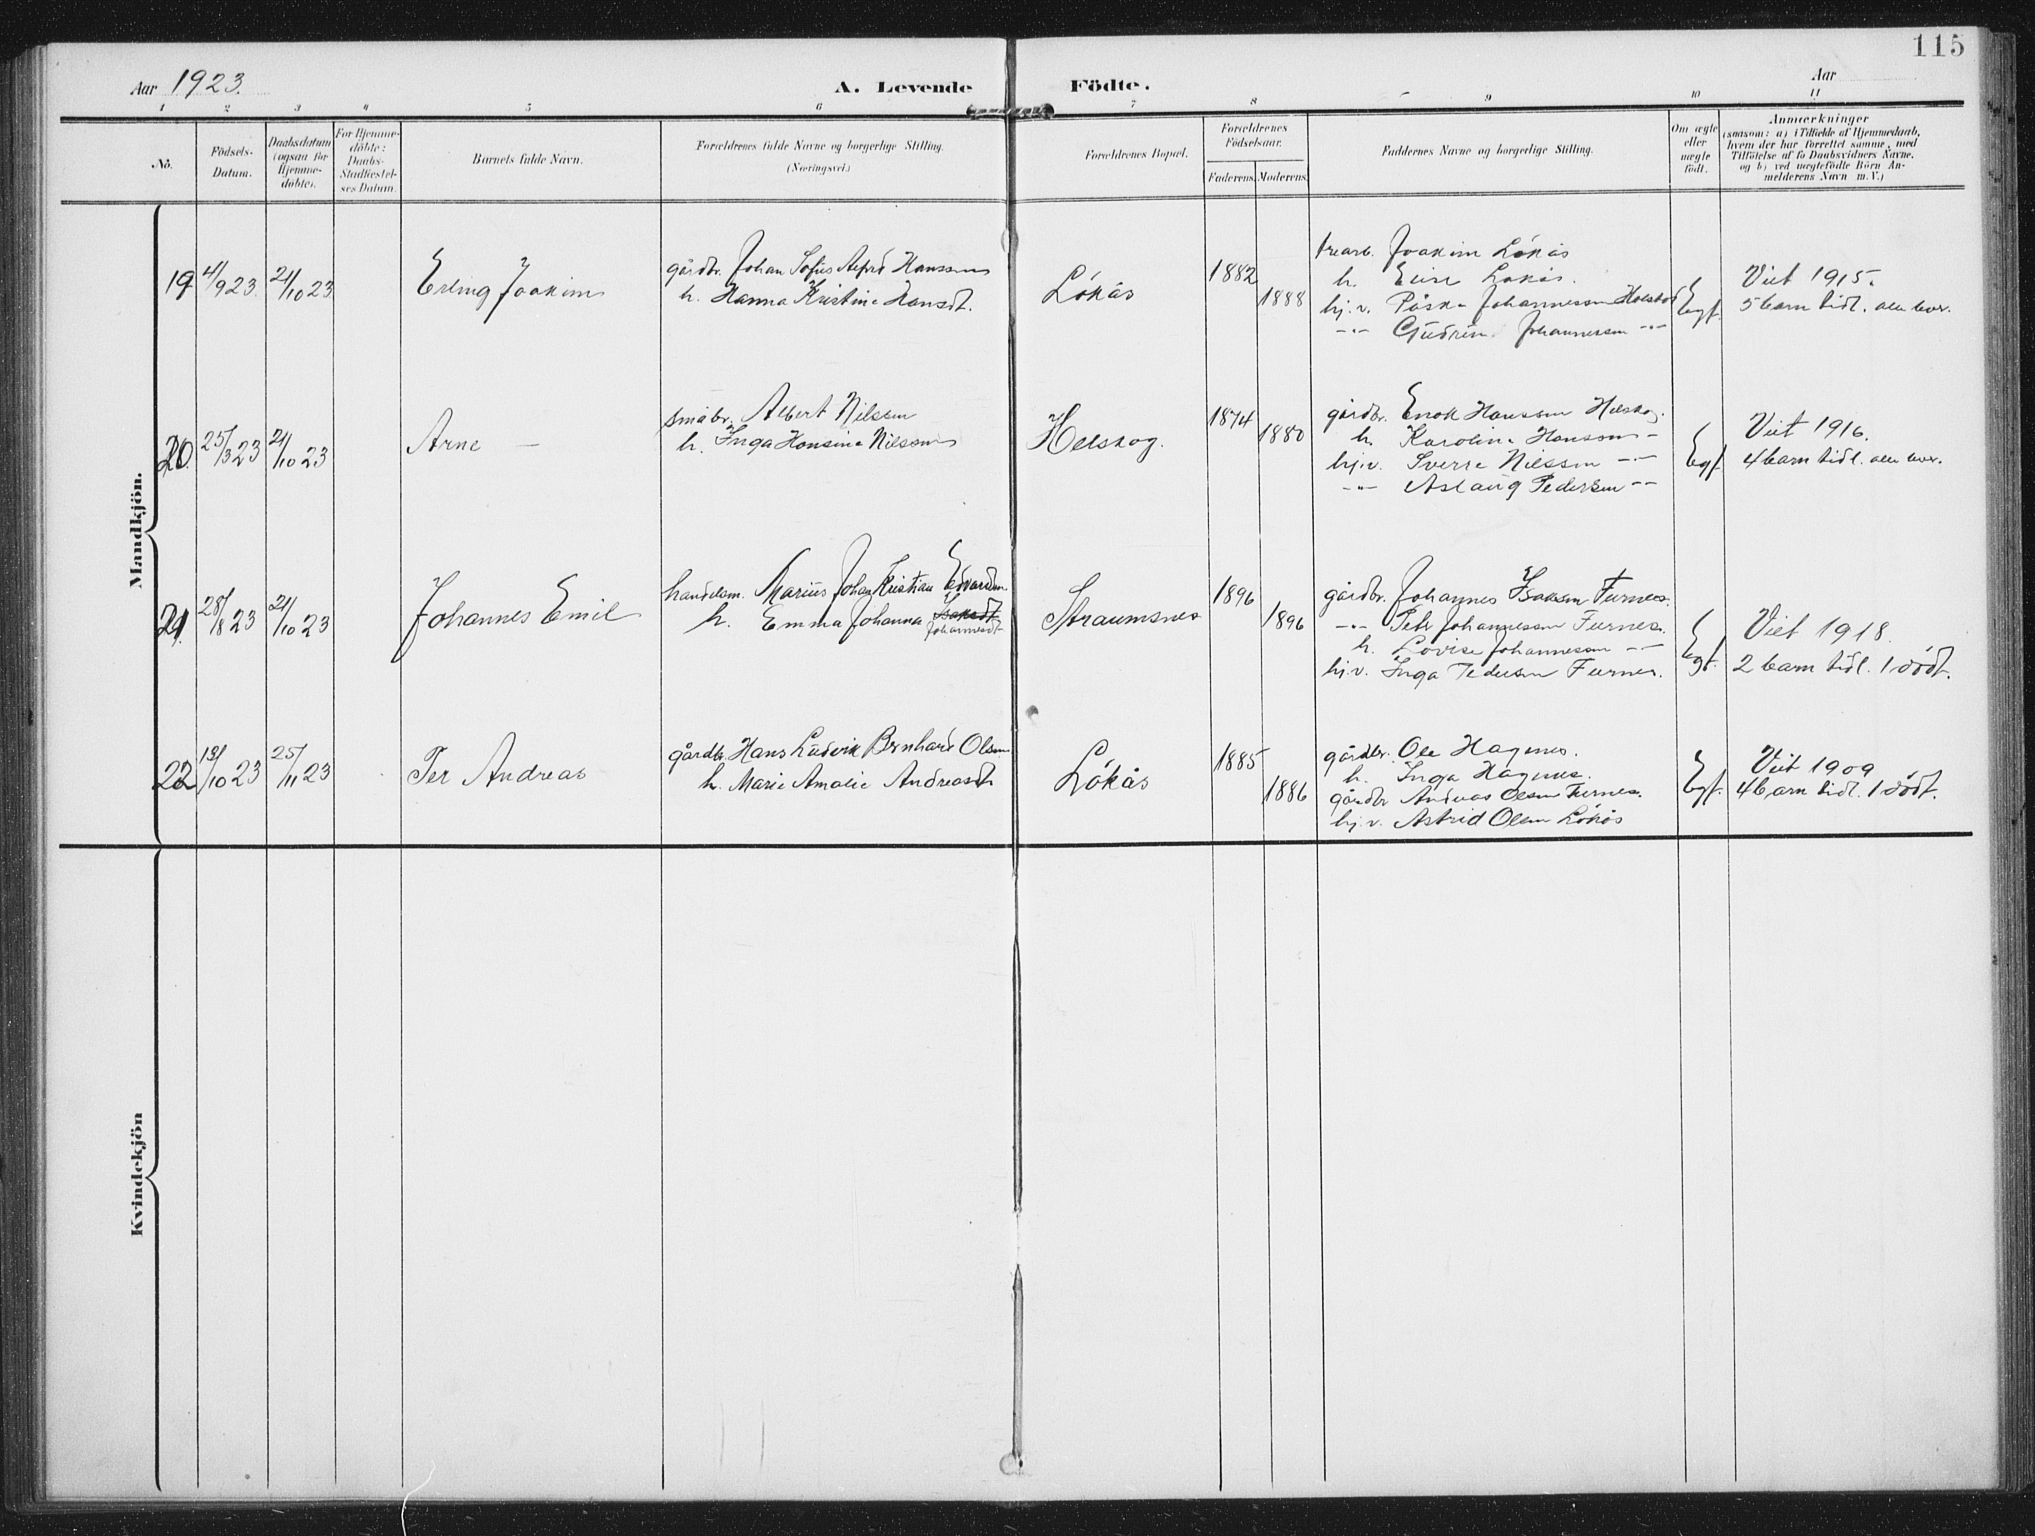 115
Aar 1923.
A. Levende Födte.
Aar
1 2 3 4 5 6 7 8 9 10 11
No.
Födsels-
Datum.
Daabsdatum
(ogsaa for
Hjemme-
döbte).
For Hjemme-
döbte:
Daabs-
Stadfæstel-
ses Datum.
Barnets fulde Navn.
Forældrenes fulde Navne og borgerlige Stilling.
(Næringsvei.)
Forældrenes Bopæl.
Forældrenes
Födselsaar.
Faderens. Moderens.
Faddernes Navne og borgerlige Stilling.
Om ægte
eller
uægte
födt.
Anmærkninger
(saasom: a) i Tilfælde af Hjemmedaab,
hvem der har forrettet samme, med
Tilföielse af to Daabsvidners Navne.
og b) ved uægtefödte Börn An-
melderens Navn m. V.)
Mandkjön.
19 4/9 23. 21/10 23
Erling Joakim
gårdbr. Johan Sofus Alfred Hanssen
h. Hanna Kristine Hansdt.
Lökås
1882
1888
trearb. Joakim Lökås
h. Elise Lökås.
hj.v. Johannessen
-"- Gudrun Johannessen -"-
Egt.
Viet 1915.
5 barn tidl. alle lever.
20. 25/3 23 21/10 23
Arne —
småbr. Albert Nilssen
h. Inga Hansine Nilssen
Helskog.
1874
1880
gårdbr. Enok Hanssen Helskog.
h. Karoline Hanssen -"-
hj.v. Sverre Nilssen -"-
-"- Aslaug Pedersen -"-
Egt.
Viet 1916.
4 barn tidl. alle lever.
21. 28/8 23 21/10 23
Johannes Emil
handelsm. Marius Johan Kristian Edvardsen
h. Emma Johanna Isaksdt
Johannesdt
Straumsnes
1896
1896
gårdbr. Johannes Isaksen Furnes.
-"- Petr Johannessen Furnes.
h. Lovise Johannessen -"-
hj.v. Inga Pedersen Furnes.
Egt.
Viet 1918.
2 barn tidl. 1 dödt.
22 13/10 23 25/11 23
Per Andreas
gårdbr. Hans Ludvik Bernhard Olsen
h. Marie Amalie Andreasdt
Lökås
1885
1886
gårdbr. Ole Hagenes.
h. Inga Hagenes.
gårdbr Andreas Olsen Furnes.
hj.v. Astrid Olsen Lökås
Egt.
Viet 1909
4 barn tidl. 1 dödt.
Kvindekjön